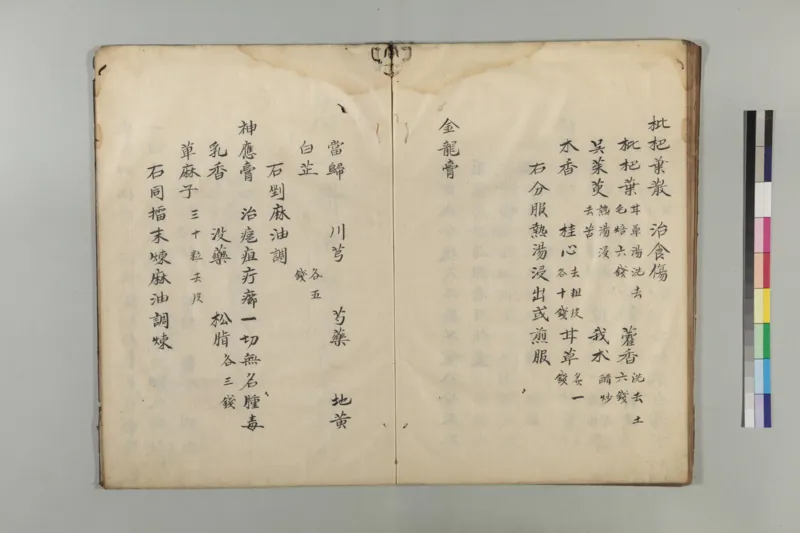 枇杷葉散　治食傷
枇杷葉　甘草湯洗去毛焙六錢　藿香　洗去土六錢
吳茱萸　熱湯浸去苦　我朮　醋炒
木香　桂心　去粗皮各十錢　甘草　炙一錢
右分服熱湯浸出或煎服
金龍膏
當歸　川芎　芍藥　地黃
白芷　各五錢
石剉麻油調
神應膏　治疤疽疔癤一切無名腫毒
乳香　沒藥　松脂　各三錢
草麻子　三十粒去皮
石同擂末煉麻油調煉